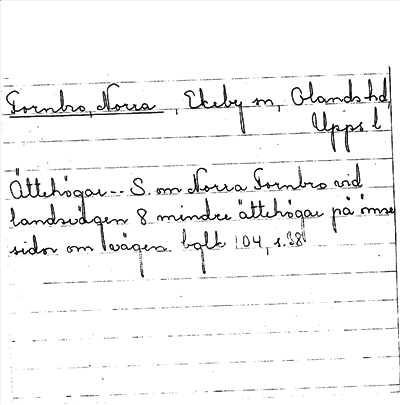 Fornbro, Norra, Ekeby sn, Olands hd,
Upps l
Ättehögar -- S. om Norra Fornbro vid
landsvägen 8 mindre ättehögar på ömse
sidor om vägen. bglh 104, s. 38